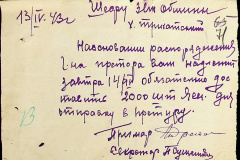 13/IV. 43 г.
Шефу Зви общины
х. Трикатский
На основании распоряжения
г-на претора вам надлежит
завтра 14/IV обязательно дос
тавить 2000 шт яец. для
отправки в претуру.
Примар
Секретар